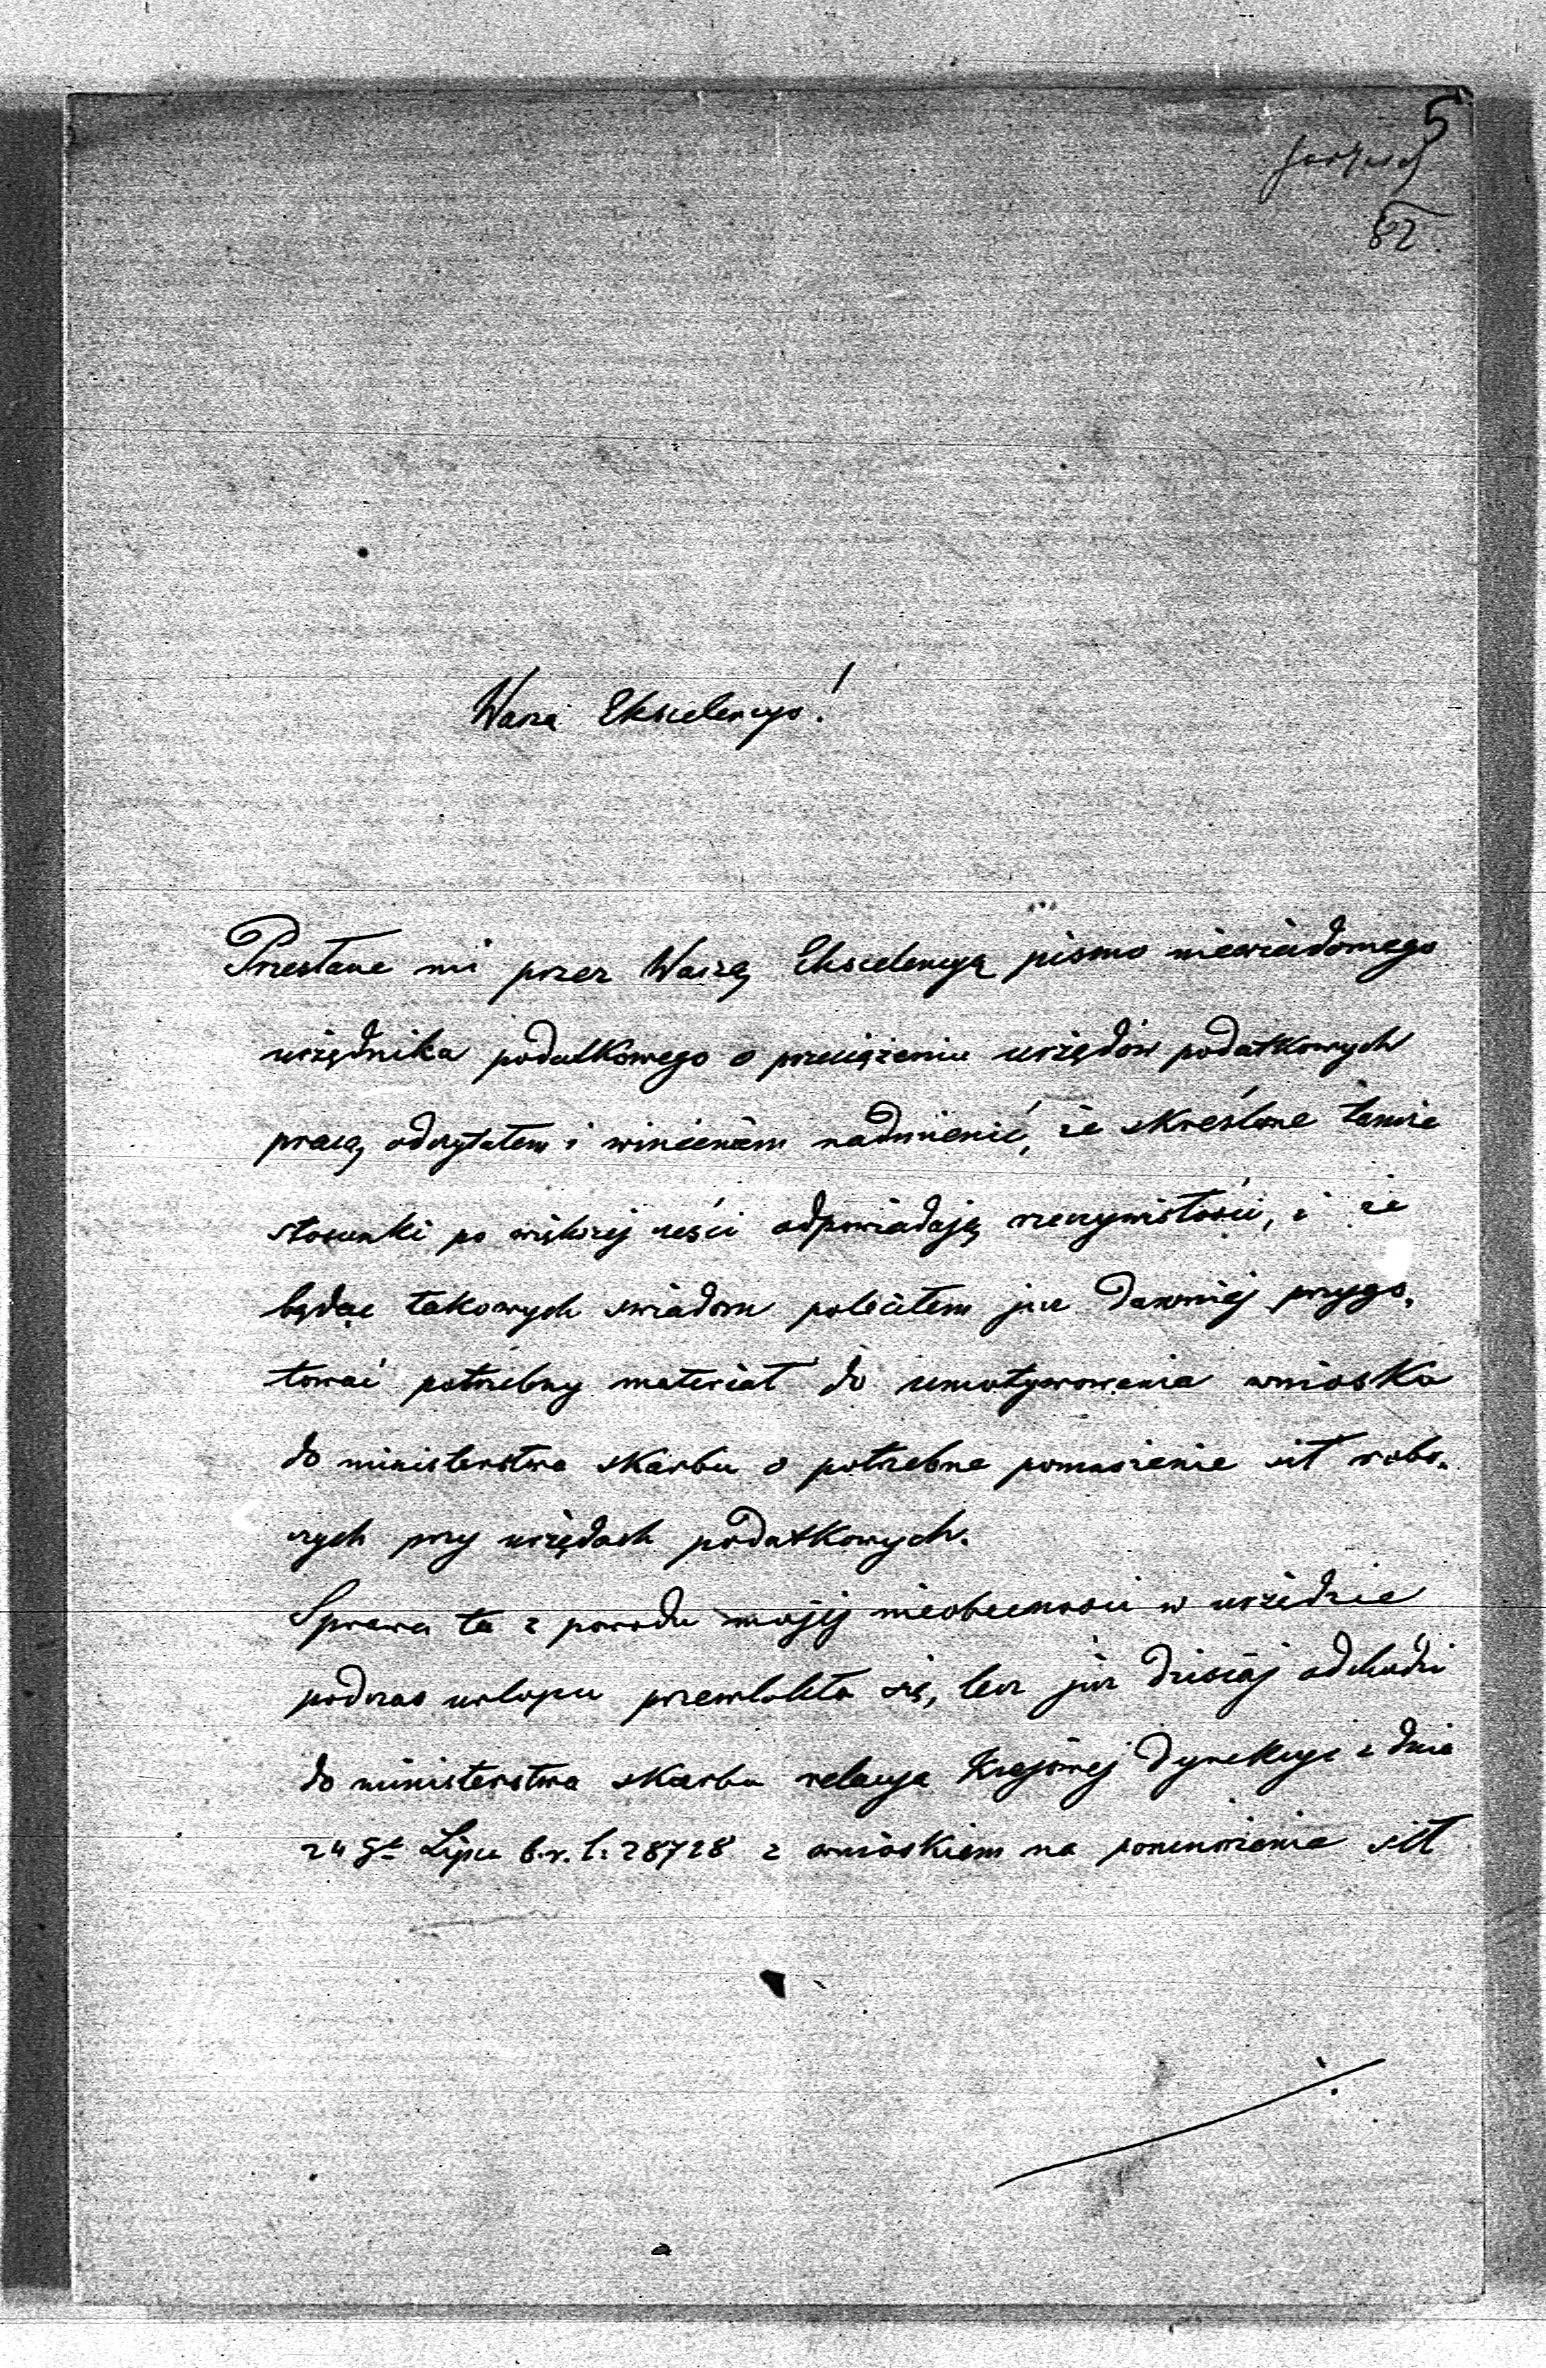 5
82
Wasza Ekscelencyo!
Przesłane mi przez Waszą Ekscelencyą pismo niewiadomego
urzędnika podatkowego o przeciążeniu urzędów podatkowych
pracą, odczytałem i winienem nadmienić, że skreślone tamże
stosunki po większej części odpowiadają rzeczywistości, i że
będąc takowych świadom poleciłem już dawniej przygo„
tować potrzebny materiał do umotywowania wnioska
do ministerstwa skarbu o potrzebne pomnożenie sił robo„
czych przy urzędach podatkowych.
Sprawa ta z powodu mojej nieobecności w urzędzie
podczas urlopu przewlokła się, lecz już dzisiaj odchodzi
do ministerstwa skarbu relacya Krajowej Dyrekcyi z dnia
24go Lipca b.r. l: 28728 z wnioskiem na pomnożenie sił